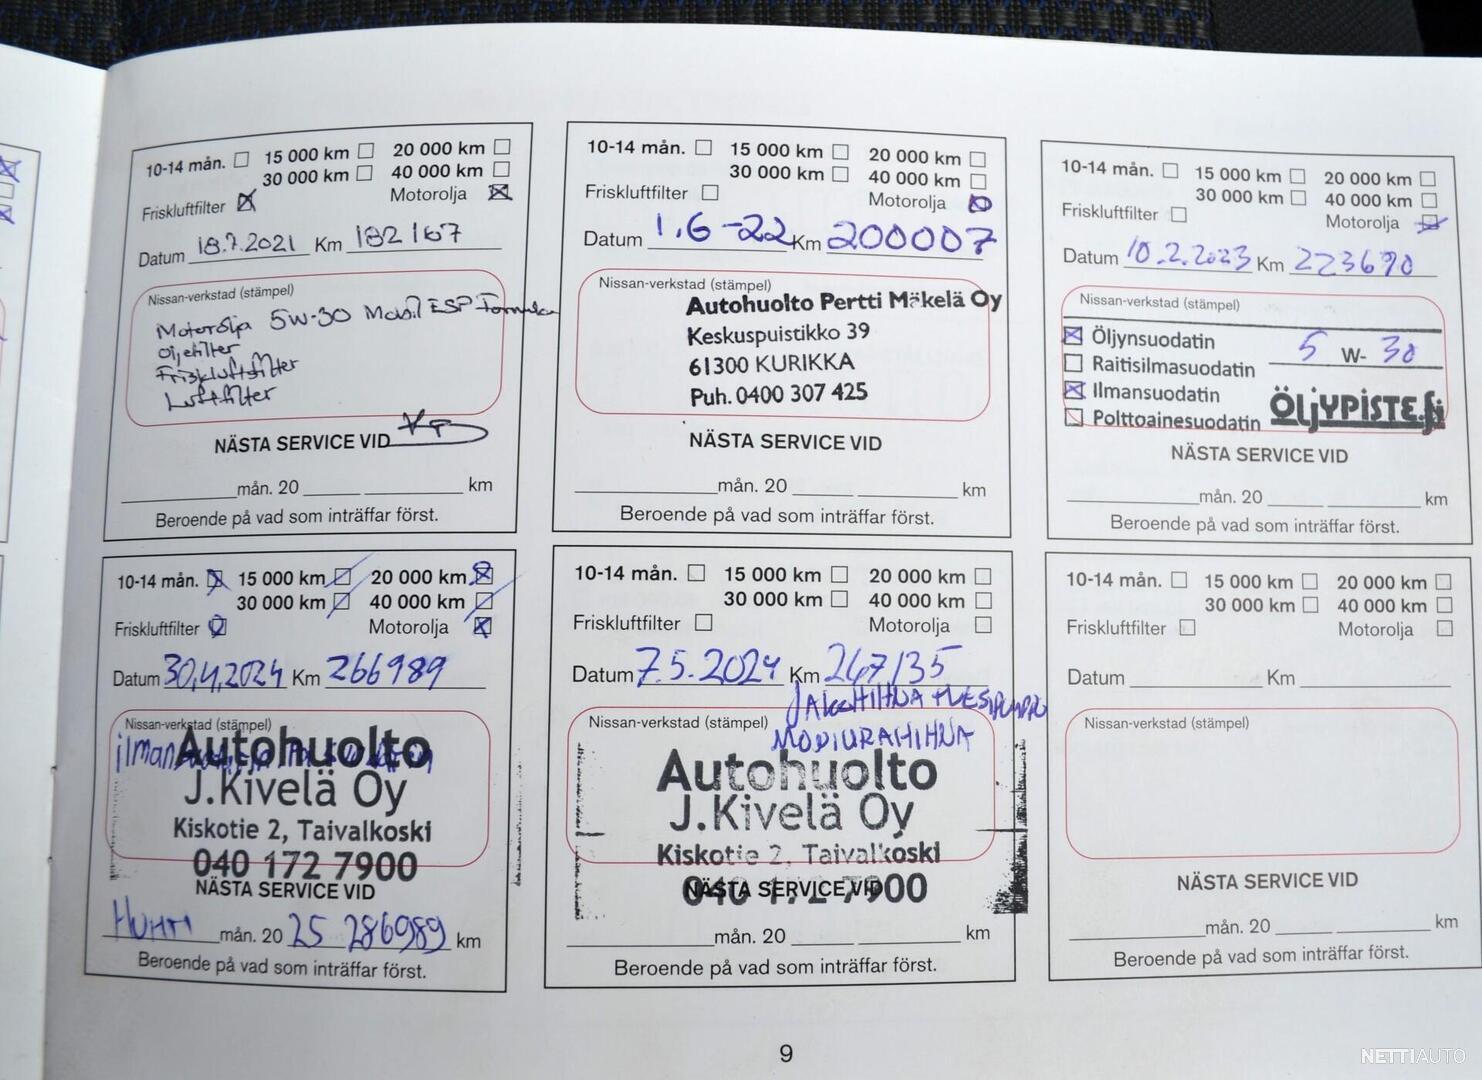 10-14 mån. 15 000 km 20 000 km
30 000 km 40 000 km
Friskluftfilter Motorolja
Datum 18.7.2021 Km 182167
Nissan-verkstad (stämpel)
Motorolja 5W-30 Mobil ESP Formula
Oljefilter
Friskluftsfilter
Luftfilter
NÄSTA SERVICE VID
mån. 20 km
Beroende på vad som inträffar först.
10-14 mån. 15 000 km 20 000 km
30 000 km 40 000 km
Friskluftfilter Motorolja
Datum 1.6-22 Km 200007
Nissan-verkstad (stämpel)
Autohuolto Pertti Mäkelä Oy
Keskuspuistikko 39
61300 KURIKKA
Puh. 0400 307 425
NÄSTA SERVICE VID
mån. 20 km
Beroende på vad som inträffar först.
10-14 mån. 15 000 km 20 000 km
30 000 km 40 000 km
Friskluftfilter Motorolja
Datum 10.2.2023 Km 223690
Nissan-verkstad (stämpel)
Öljynsuodatin 5 W- 30
Raitisilmasuodatin
Ilmansuodatin
Polttoainesuodatin ÖLJYPISTE.fi
NÄSTA SERVICE VID
mån. 20 km
Beroende på vad som inträffar först.
10-14 mån. 15 000 km 20 000 km
30 000 km 40 000 km
Friskluftfilter Motorolja
Datum 30.4.2024 Km 266989
Nissan-verkstad (stämpel)
Autohuolto
J.Kivelä Oy
Kiskotie 2, Taivalkoski
040 172 7900
NÄSTA SERVICE VID
HUHTI mån. 20 25 286989 km
Beroende på vad som inträffar först.
10-14 mån. 15 000 km 20 000 km
30 000 km 40 000 km
Friskluftfilter Motorolja
Datum 7.5.2024 Km 267135
JAKOHIHNA + VESIPUMPPU
Nissan-verkstad (stämpel)
MONIURAHIHNA
Autohuolto
J.Kivelä Oy
Kiskotie 2, Taivalkoski
040 172 7900
NÄSTA SERVICE VID
mån. 20 km
Beroende på vad som inträffar först.
10-14 mån. 15 000 km 20 000 km
30 000 km 40 000 km
Friskluftfilter Motorolja
Datum Km
Nissan-verkstad (stämpel)
NÄSTA SERVICE VID
mån. 20 km
Beroende på vad som inträffar först.
9
NETTIAUTO